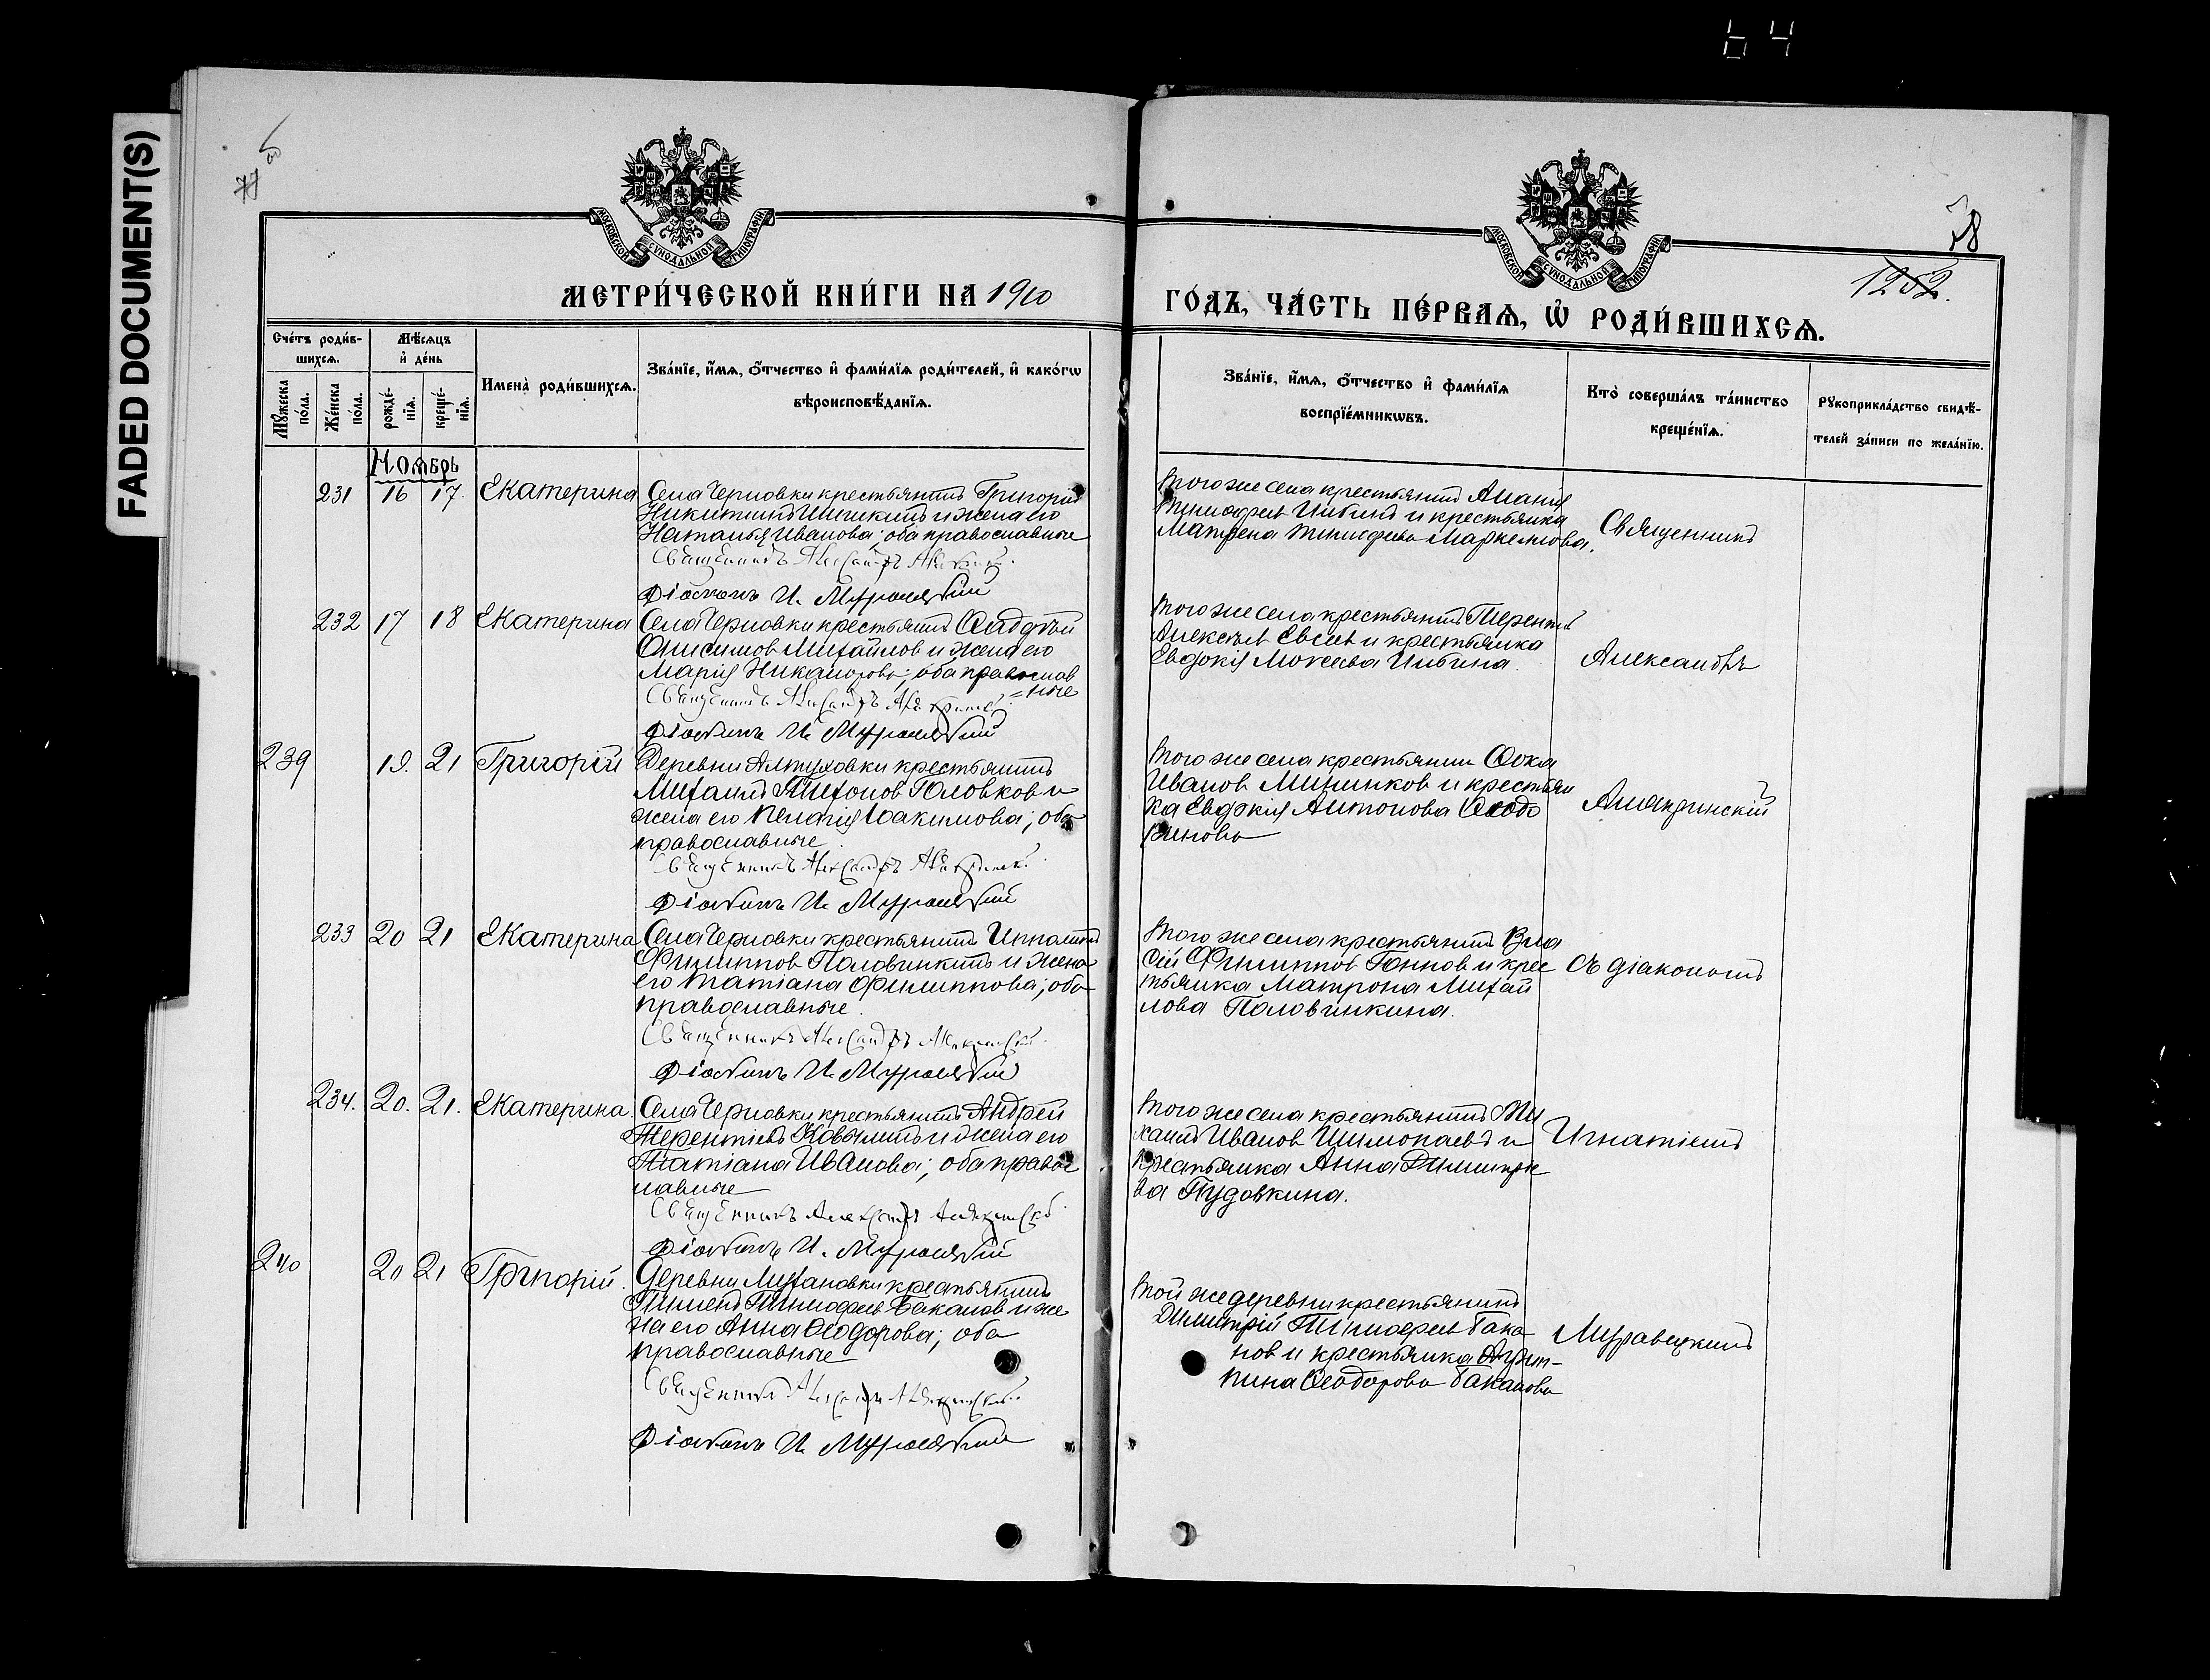 64
FADED DOCUMENT(S)
78
1252.
МОСКОВСКОЙ СУНОДАЛЬНОЙ ТИПОГРАФІИ
МОСКОВСКОЙ СУНОДАЛЬНОЙ ТИПОГРАФІИ
МЕТРИ́ЧЕСКОЙ КНИ́ГИ НА 1910
ГО́ДЪ, ЧА́СТЬ ПЕ́РВАѦ, Ѡ҆ РОДИ́ВШИХСѦ.
Сче́тъ роди́в-
шихсѧ.
Мꙋ́жеска
по́ла.
Же́нска
по́ла.
Мѣ́сѧцъ
и҆ де́нь
рожде́-
нїѧ.
креще́-
нїѧ.
Имена̀ роди́вшихсѧ.
Зва́нїе, и҆́мѧ, ѻ҆́тчество и҆ фами́лїѧ роди́телей, и҆ како́гѡ
вѣроисповѣ́данїѧ.
Зва́нїе, и҆́мѧ, ѻ҆́тчество и҆ фами́лїѧ
воспрїе́мникѡвъ.
Кто̀ соверша́лъ та́инство
креще́нїѧ.
Рꙋкоприкла́дство свидѣ́-
телей за́писи по жела́нїю.
Ноябрь
231 16 17. Екатерина Села Черновки крестьянинъ Григорій
Никитинъ и жена его
Наталья Иванова; оба православные
Священникъ Александръ
Діаконъ И. Муравецкій
Того же села крестьянинъ Ананія
и крестьянка
Матрена
Священникъ
232 17 18 Екатерина Села Черновки крестьянинъ
Анисимов Михайлов и жена его
Марія Никанорова; оба православ
=ные
Священникъ Александръ
Діаконъ И. Муравецкій
Того же села крестьянинъ Терентій
Алексѣев Евсеев и крестьянка
Евдокія Мокеева
Александръ
239 19. 21 Григорій Деревни Алтуховки крестьянинъ
Михаилъ Тихонов Головков и
жена его Пелагія Іоакимова; оба
православные.
Священникъ Александръ
Діаконъ И. Муравецкій
Того же села крестьянин Фока
Иванов Мининков и крестьян
ка Евдокія Антонова
Алякринскій
233 20 21 Екатерина Села Черновки крестьянинъ Ипполитъ
Филиппов Половинкинъ и жена
его Татіана Филиппова; оба
православные.
Священникъ Александръ
Діаконъ И. Муравецкій
Того же села крестьянинъ Вла
сій Филиппов и крес
тьянка Матрона Михай
лова Половинкина.
съ діакономъ
234. 20. 21. Екатерина. Села Черновки крестьянинъ Андрей
Терентіевъ и жена его
Татіана Иванова; оба правос
лавные
Священникъ Александръ
Діаконъ И. Муравецкій
Того же села крестьянинъ Ми
хаилъ Иванов и
крестьянка Анна Димитріе
ва Пудовкина.
Игнатіемъ
240 20 21 Григорій. Деревни Михановки крестьянинъ
Пименъ Тимофеев Баканов и же
на его Анна Ѳеодорова; оба
православные
Священникъ
Діаконъ И. Муравецкій
Той же деревни крестьянинъ
Димитрій Тимофеев Бака
нов и крестьянка Агрип-
пина Ѳеодорова Баканова
Муравецкимъ